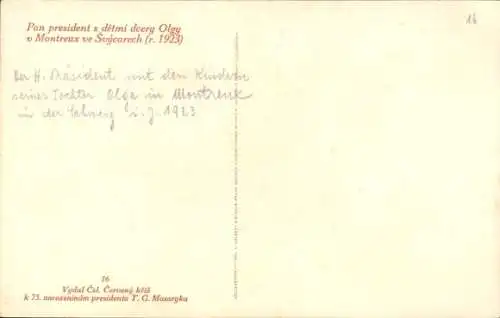 Pan president s dětmi dcery Olgy
v Montreux ve Švýcarech (r. 1923)
16
Der H. Präsident mit den Kindern
seiner Tochter Olga in Montreux
in der Schweiz i. J. 1923
16
Vydal Čsl. Červený kříž
k 75. narozeninám presidenta T. G. Masaryka